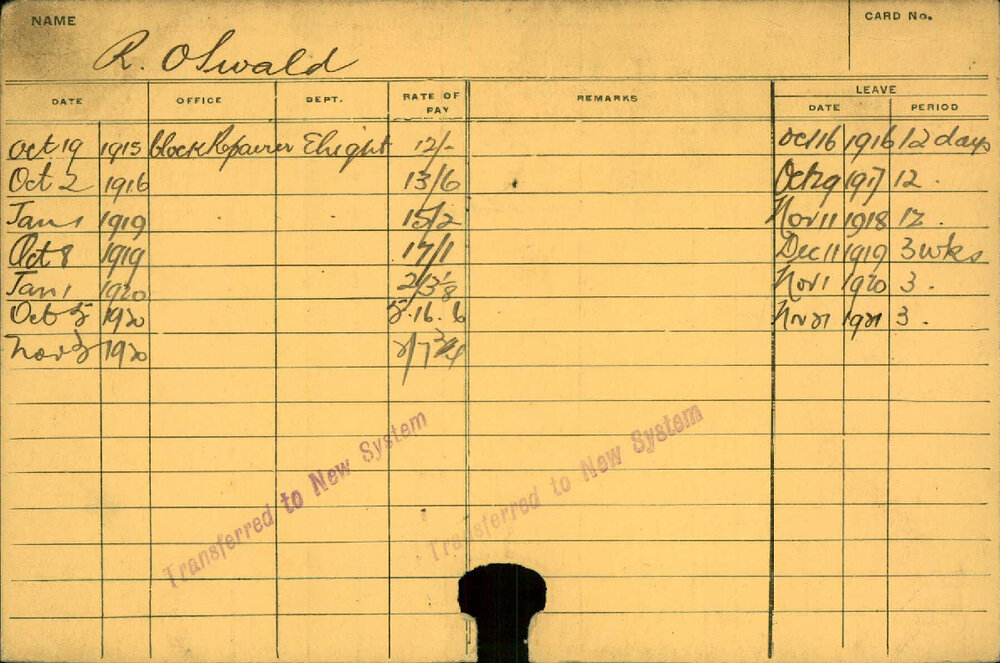 NAME
CARD No.
R. Oswald
DATE OFFICE DEPT. RATE OF PAY REMARKS LEAVE
DATE PERIOD
Oct 19 1915 Clock Repairer Elright 12/- Oct 16 1916 12 days
Oct 2 1916 13/6 Oct 29 1917 12.
Jan 1 1919 15/2 Nov 11 1918 12.
Oct 8 1919 17/1 Dec 11 1919 3 wks
Jan 1 1920 2/3 1/8 Nov 1 1920 3.
Oct 5 1920 5.16.6 Nov 21 1921 3.
Nov 5 1920 2/7 3/4
Transferred to New System
Transferred to New System